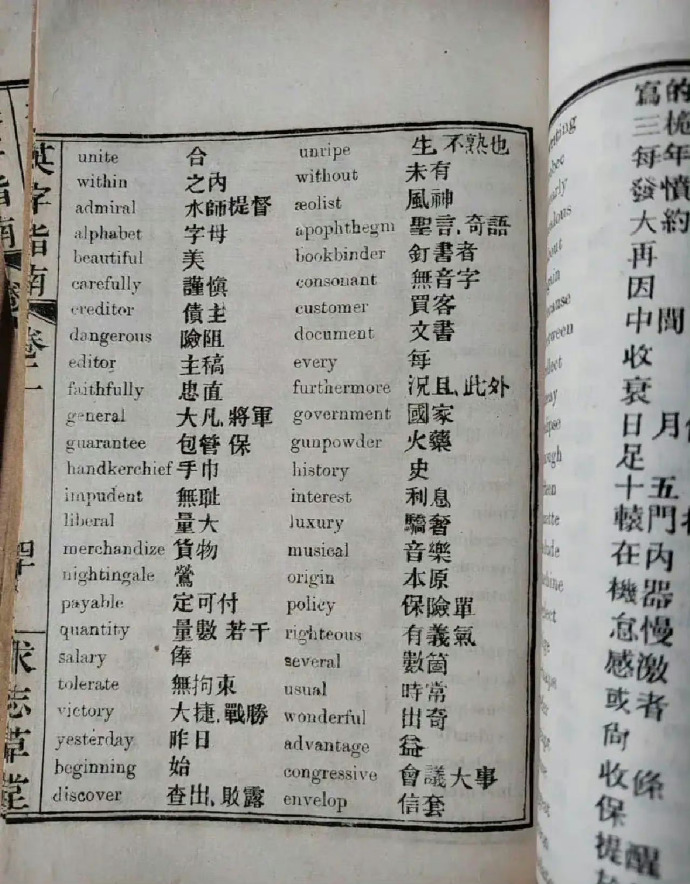 英字指南
卷二
求志草堂
unite 合 unripe 生,不熟也
within 之內 without 未有
admiral 水師提督 æolist 風神
alphabet 字母 apophthegm 聖言,奇語
beautiful 美 bookbinder 釘書者
carefully 謹慎 consonant 無音字
creditor 債主 customer 買客
dangerous 險阻 document 文書
editor 主稿 every 每
faithfully 忠直 furthermore 況且,此外
general 大凡,將軍 government 國家
guarantee 包管 保 gunpowder 火藥
handkerchief 手巾 history 史
impudent 無耻 interest 利息
liberal 量大 luxury 驕奢
merchandize 貨物 musical 音樂
nightingale 鶯 origin 本原
payable 定可付 policy 保險單
quantity 量數 若干 righteous 有義氣
salary 俸 several 數箇
tolerate 無拘束 usual 時常
victory 大捷,戰勝 wonderful 出奇
yesterday 昨日 advantage 益
beginning 始 congressive 會議大事
discover 查出,敗露 envelop 信套
寫的
三桅
每年
發憤
大約
再
因
中間
收
衰
日月
足
十五
轅門
在內
機器
怠慢
感激
或者
尙
收條
保
提醒